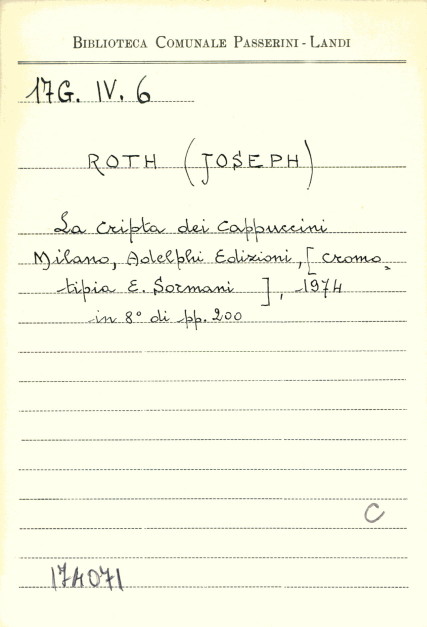 BIBLIOTECA COMUNALE PASSERINI - LANDI
17G. IV. 6
ROTH (JOSEPH)
La cripta dei Cappuccini
Milano, Adelphi Edizioni, [ cromo-
tipia E. Sormani ], 1974
in 8° di pp. 200
C
174071